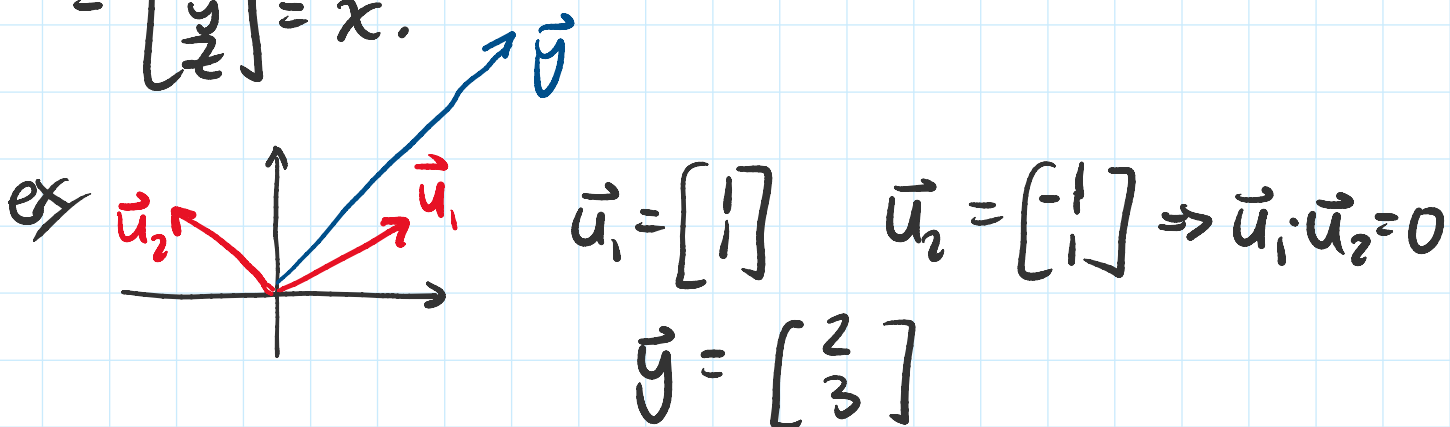 = [y z] = x.
y⃗
ex u⃗₂ u⃗₁ u⃗₁ = [1 1] u⃗₂ = [-1 1] ⇒ u⃗₁·u⃗₂ = 0
y⃗ = [2 3]